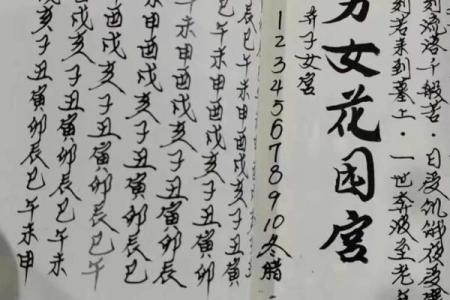 刻流落千般苦·日受饥饿夜受
刻若来到墓上·一世奔波至老年
男女花园宮
弃子女宮
1 2 3 4 5 6 7 8 9 10 冬腊
辰巳午未申酉戌亥子丑寅
巳午未申酉戌亥子丑寅卯
午未申酉戌亥子丑寅卯辰
未申酉戌亥子丑寅卯辰巳
申酉戌亥子丑寅卯辰巳午
酉戌亥子丑寅卯辰巳午未
戌亥子丑寅卯辰巳午未申